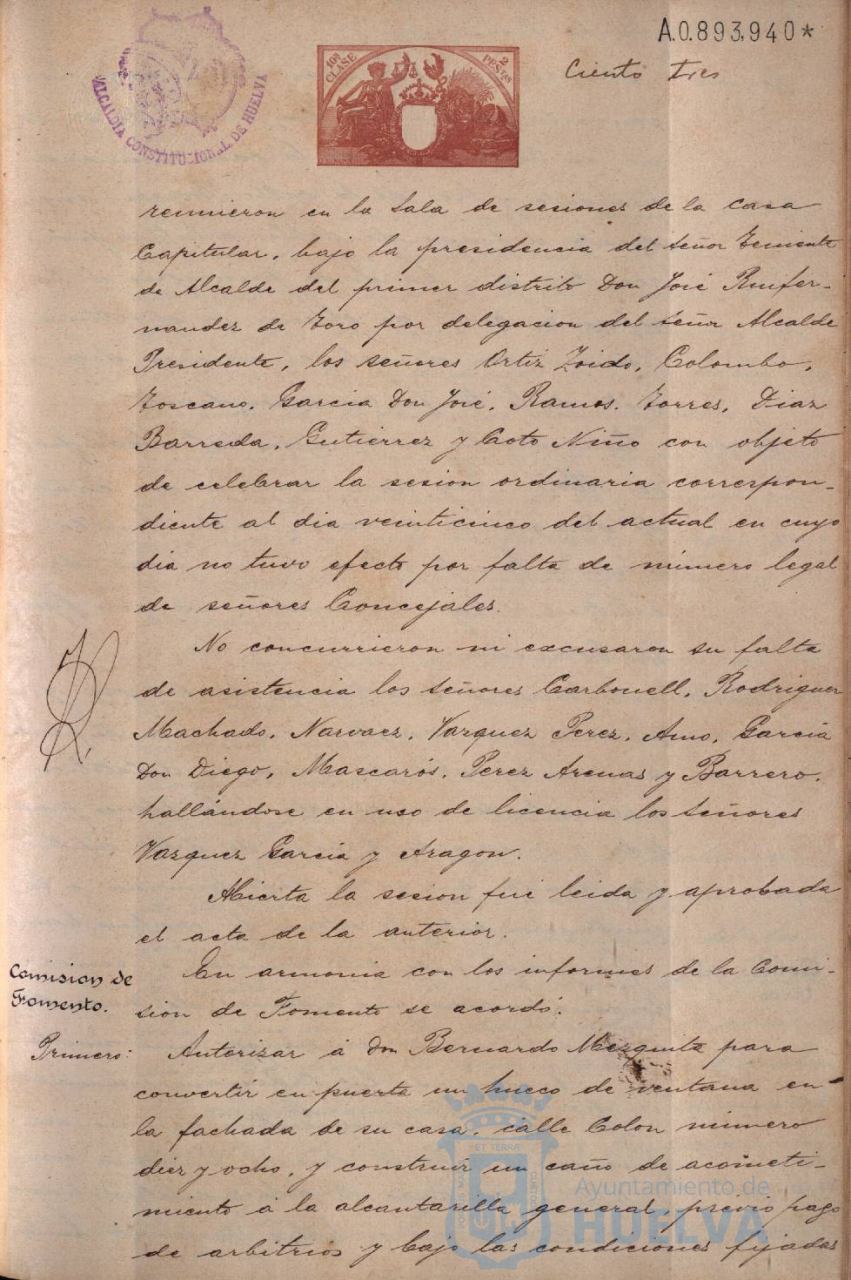 A.0.893,940*
Ciento tres
10ª CLASE
2 PESETAS
ALCALDIA CONSTITUCIONAL DE HUELVA
reunieron en la Sala de sesiones de la Casa
Capitular, bajo la presidencia del Señor Teniente
de Alcalde del primer distrito Don José Ruifer-
nandez de Toro por delegacion del Señor Alcalde
Presidente, los señores Ortiz Zoido, Colombo,
Toscano, Garcia Don José, Ramos, Torres, Diaz
Barreda, Gutierrez y Coto Niño con objeto
de celebrar la sesion ordinaria correspon-
diente al dia veinticinco del actual en cuyo
dia no tuvo efecto por falta de número legal
de señores Concejales.
No concurrieron ni excusaron su falta
de asistencia los Señores Carbonell, Rodriguez
Machado, Narvaez, Vazquez Perez, Amo, García
Don Diego, Mascarós, Perez Arenas y Barrero,
hallándose en uso de licencia los Señores
Vazquez García y Aragon.
Abierta la sesion fué leida y aprobada
el acta de la anterior.
Comision de
Fomento.
En armonia con los informes de la Comi-
sion de Fomento se acordó:
Primero:
Autorizar á don Bernardo Mezquita para
convertir en puerta un hueco de ventana en
la fachada de su casa, calle Colon número
diez y ocho, y construir un caño de acometi-
miento á la alcantarilla general previo pago
de arbitrios y bajo las condiciones fijadas
Ayuntamiento de
HUELVA